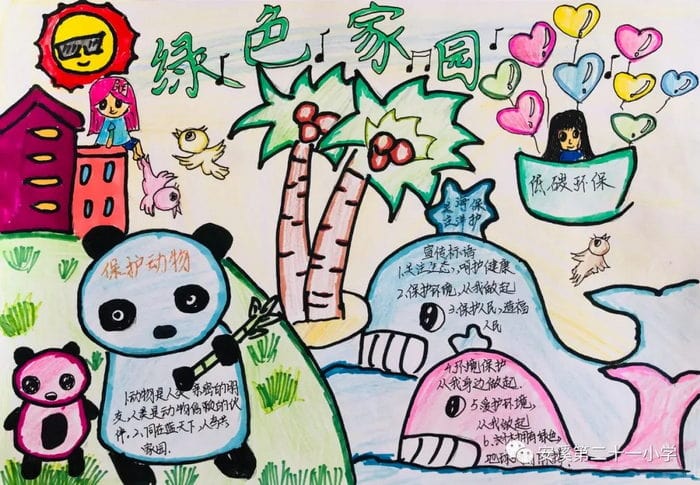 绿色家园
低碳环保
关海保
注洋护
保护动物
宣传标语
1.关注生态,呵护健康
2.保护环境,从我做起
3.保护人民,造福
人民
4.环境保护
从我身边做起.
5.爱护环境,
从我做起
6.拥有绿色
地球
1.动物是人类亲密的朋
友,人类是动物信赖的伙
伴.2、同在蓝天下,人鸟共
家园.
安溪第二十一小学